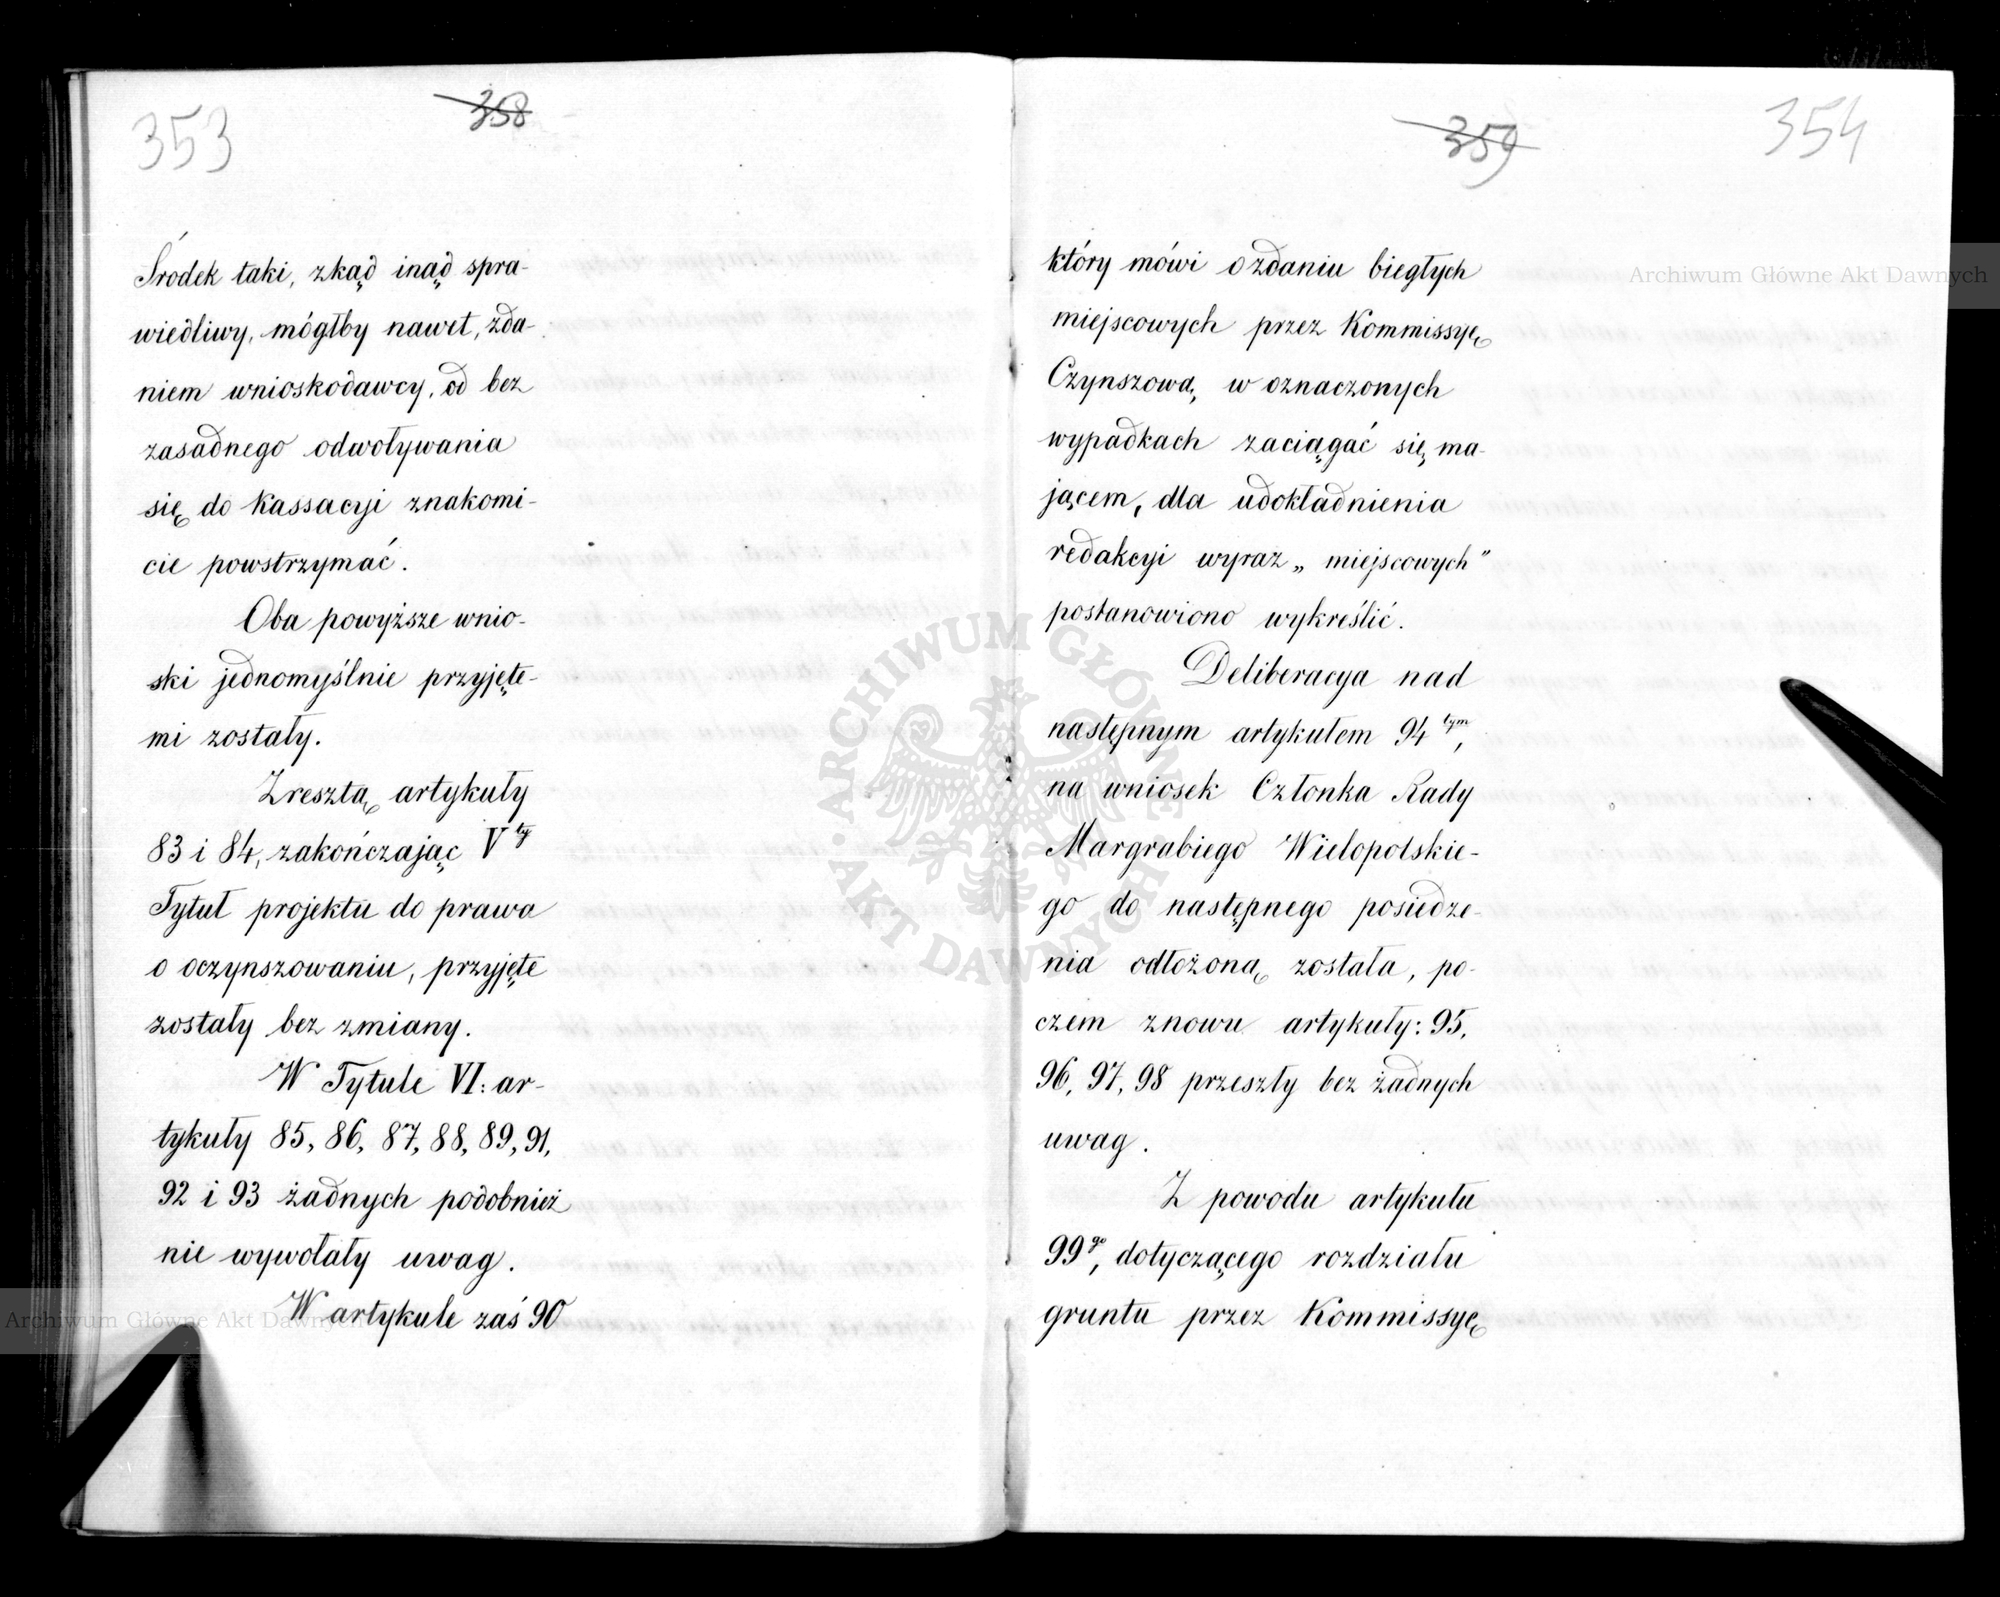 353
358
Środek taki, zkąd inąd spra-
wiedliwy, mógłby nawet, zda-
niem wnioskodawcy, od bez
zasadnego odwoływania
się do Kassacyi znakomi-
cie powstrzymać.
Oba powyższe wnio-
ski jednomyślnie przyjęte-
mi zostały.
Zresztą artykuły
83 i 84, zakończając V ty
Tytuł projektu do prawa
o oczynszowaniu, przyjęte
zostały bez zmiany.
W Tytule VI: ar-
tykuły 85, 86, 87, 88, 89, 91,
92 i 93 żadnych podobnież
nie wywołały uwag.
W artykule zaś 90
359
354
który mówi o zdaniu biegłych
miejscowych przez Kommissyę
Czynszową, w oznaczonych
wypadkach zaciągać się ma-
jącem, dla udokładnienia
redakcyi wyraz „miejscowych”
postanowiono wykreślić.
Deliberacya nad
następnym artykułem 94 tym,
na wniosek Członka Rady
Margrabiego Wielopolskie-
go do następnego posiedze-
nia odłożoną została, po-
czem znowu artykuły: 95,
96, 97, 98 przeszły bez żadnych
uwag.
Z powodu artykułu
99 go, dotyczącego rozdziału
gruntu przez Kommissyę
Archiwum Główne Akt Dawnych
Archiwum Główne Akt Dawnych
ARCHIWUM GŁÓWNE AKT DAWNYCH